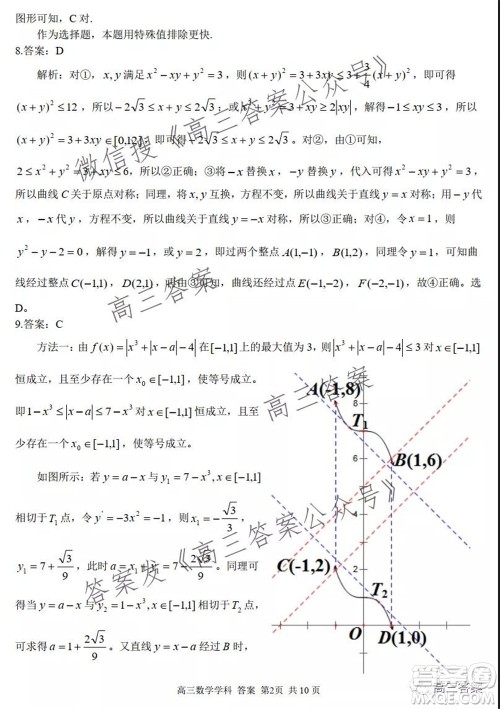 图形可知，C 对.
作为选择题，本题用特殊值排除更快.
8.答案：D
解析：对①，x, y 满足 x² − xy + y² = 3，则 (x + y)² = 3 + 3xy ≤ 3 + 3/4 (x + y)²，即可得
(x + y)² ≤ 12，所以 −2√3 ≤ x + y ≤ 2√3；或 x² + y² = 3 + xy ≥ 2|xy|，解得 −1 ≤ xy ≤ 3，所以
(x + y)² = 3 + 3xy ∈ [0,12]，即可得 −2√3 ≤ x + y ≤ 2√3．对②，由①可知，
2 ≤ x² + y² = 3 + xy ≤ 6，所以②正确；对③，将 x 替换成 −x，y 替换 −y，代入可得 x² − xy + y² = 3，
所以曲线 C 关于原点对称；同理，将 x, y 互换，方程不变，所以曲线关于直线 y = x 对称；用 −y 代
x，−x 代 y，方程不变，所以曲线关于直线 y = −x 对称，所以③正确；对④，令 x = 1，则
y² − y − 2 = 0，解得 y = −1，或 y = 2，即过两个整点 A(1,−1)，B(1,2)，同理令 y = 1，可知曲
线经过整点 C(−1,1)，D(2,1)，由曲线对称性，曲线还经过点 E(−1,−2)，F(−2,−1)，故④正确。选
D。
9.答案：C
方法一：由 f(x) = |x³ + |x − a| − 4| 在 [−1,1] 上的最大值为 3，则 |x³ + |x − a| − 4| ≤ 3 对 x ∈ [−1,1]
恒成立，且至少存在一个 x₀ ∈ [−1,1]，使等号成立。
即 1 − x³ ≤ |x − a| ≤ 7 − x³ 对 x ∈ [−1,1] 恒成立，且至
少存在一个 x₀ ∈ [−1,1]，使等号成立。
如图所示：若 y = a − x 与 y₁ = 7 − x³, x ∈ [−1,1]
相切于 T₁ 点，令 y' = −3x² = −1，则 x₁ = −√3/3，
y₁ = 7 + √3/9，此时 a = x₁ + y₁ = 7 − 2√3/9．同理可
得当 y = a − x 与 y₂ = 1 − x³, x ∈ [−1,1] 相切于 T₂ 点，
可求得 a = 1 + 2√3/9．又直线 y = x − a 经过 B 时，
A(-1,8)
8
T₁
B(1,6)
6
4
C(-1,2)
2
T₂
O
D(1,0)
高三数学学科 答案 第2页 共 10 页
微信搜《高三答案公众号》
高三答案
高三答案
答案发《高三答案公众号》
高三答案